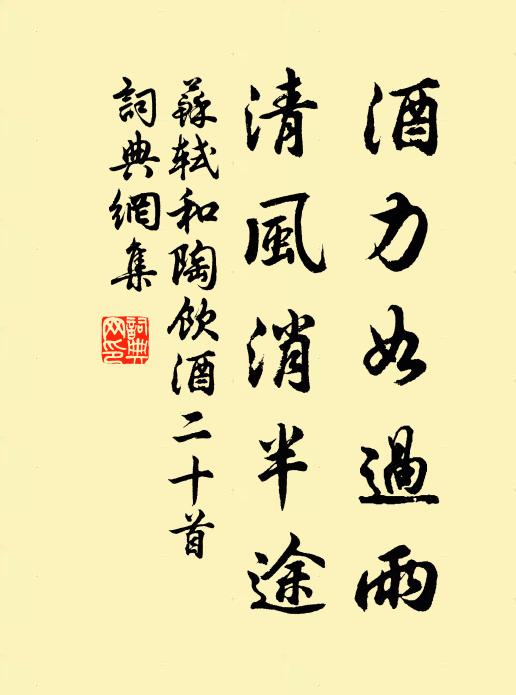 酒力如過雨
清風消半途
蘇軾和陶飲酒二十首
詞典網集
詞典網印